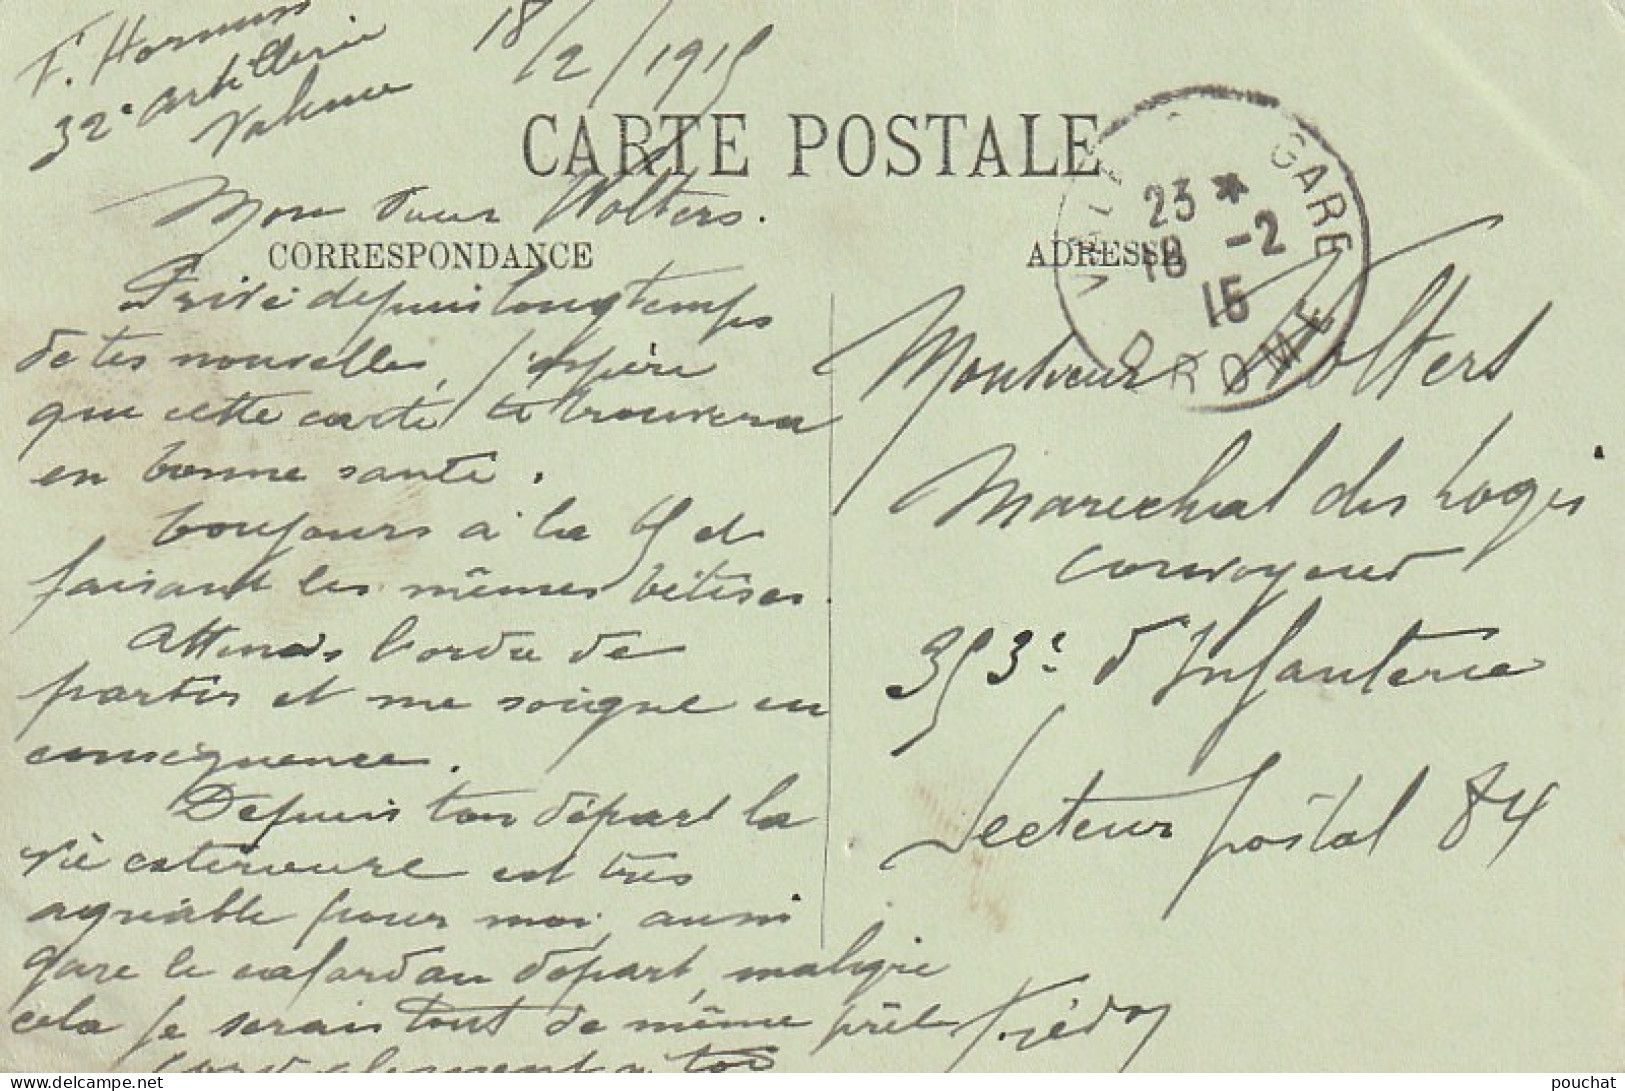 F. Hormuss
32e artillerie
Valence
18/2/1915
CARTE POSTALE
Mon vieux Wolters.
CORRESPONDANCE
Privé depuis longtemps
de tes nouvelles, j'espère
que cette carte te trouvera
en bonne santé.
Toujours à la 65 et
faisant les mêmes bêtises.
Attends l'ordre de
partir et me soigne en
conséquence.
Depuis ton départ la
vie extérieure est très
agréable pour moi, aussi
gare le cafard au départ, malgré
cela je serais tout de même prêt
Cordialement à toi
Frédy
ADRESSE
GARE
23 *
18 -2
15
DROME
Monsieur Wolters
Marechal des Logis
Convoyeur
353e d'Infanterie
Secteur postal 84
delcampe.net
pouchat